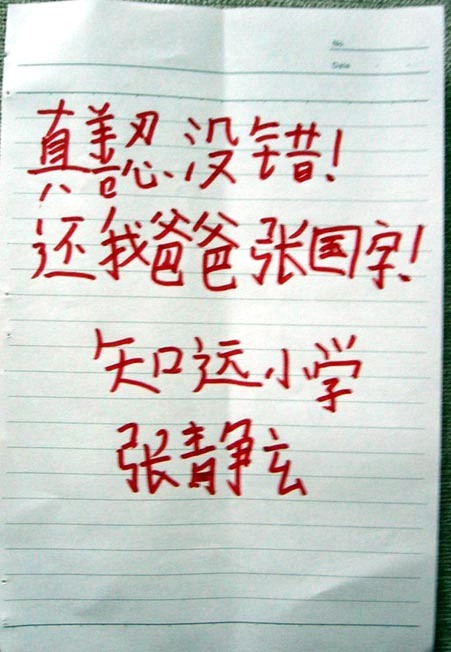 No
Date
真善忍没错!
还我爸爸张国字!
知远小学
张静玄